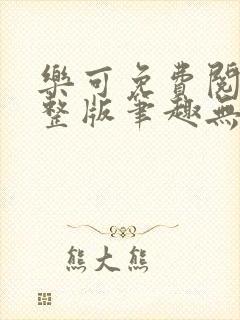 樂可免費閱
整版筆趣無
熊大熊